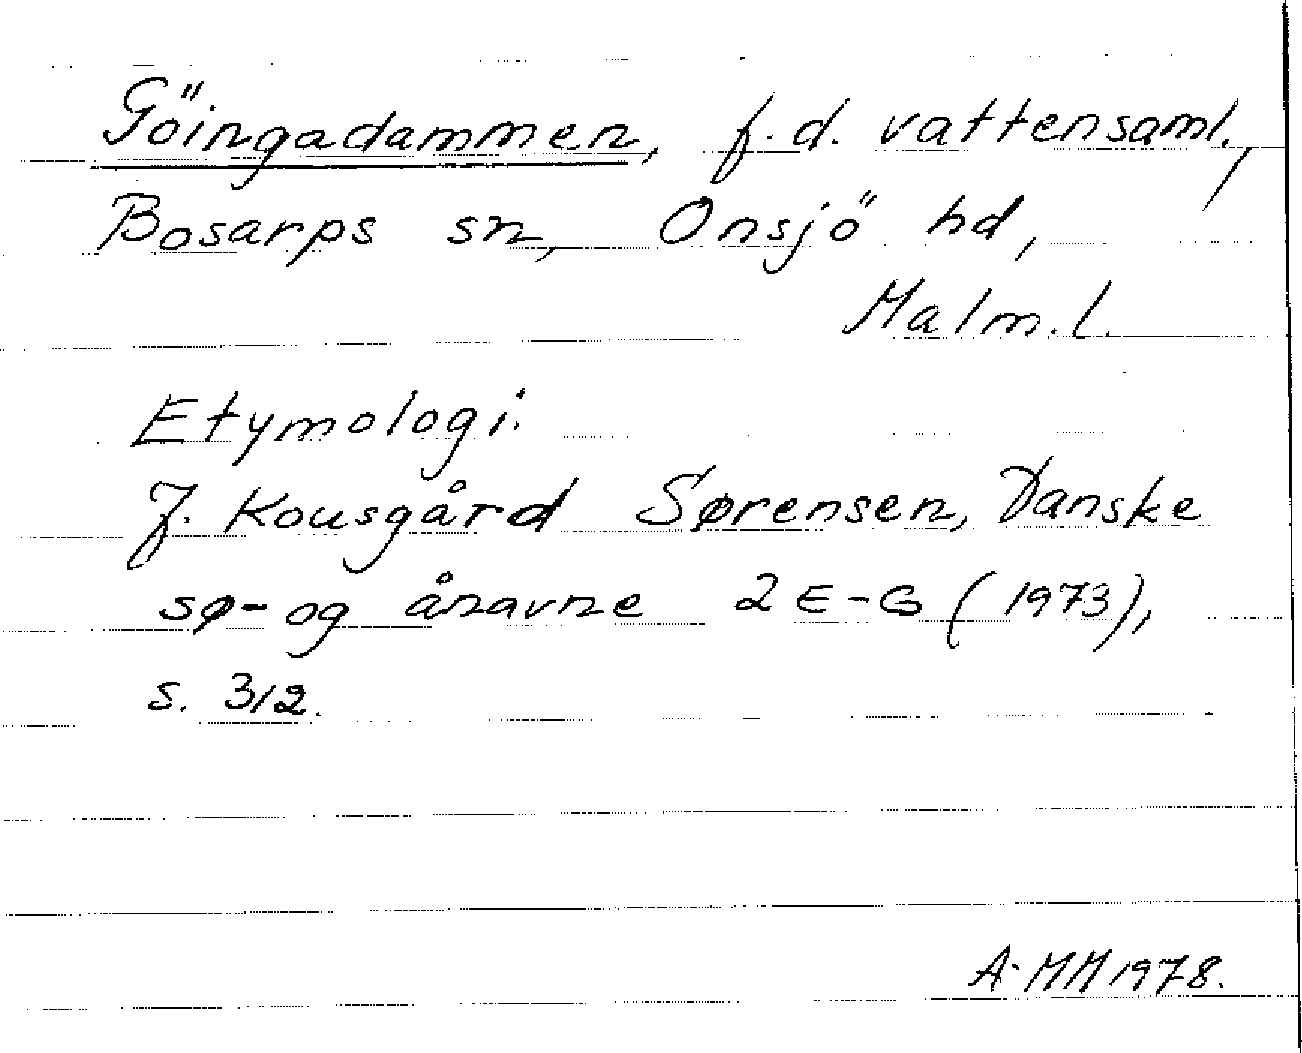 Göingadammen, f.d. vattensaml.,
Bosarps sn, Onsjö hd,
Malm.l.
Etymologi:
J. Kousgård Sørensen, Danske
sø- og ånavne 2 E-G (1973),
s. 312.
A-MM 1978.